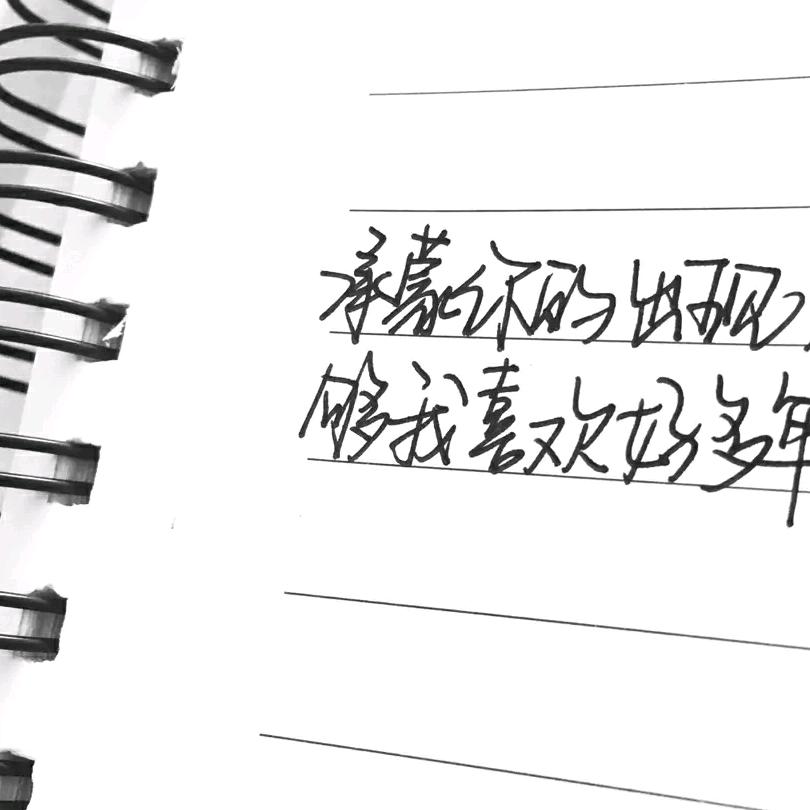 承蒙你的出现,
够我喜欢好多年